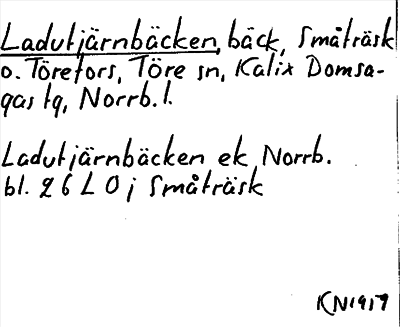 Ladutjärnbäcken, bäck, Småträsk
o. Törefors, Töre sn, Kalix Domsa-
gas tg, Norrb. l.
Ladutjärnbäcken ek Norrb.
bl. 26 L 0 j Småträsk
KN1917